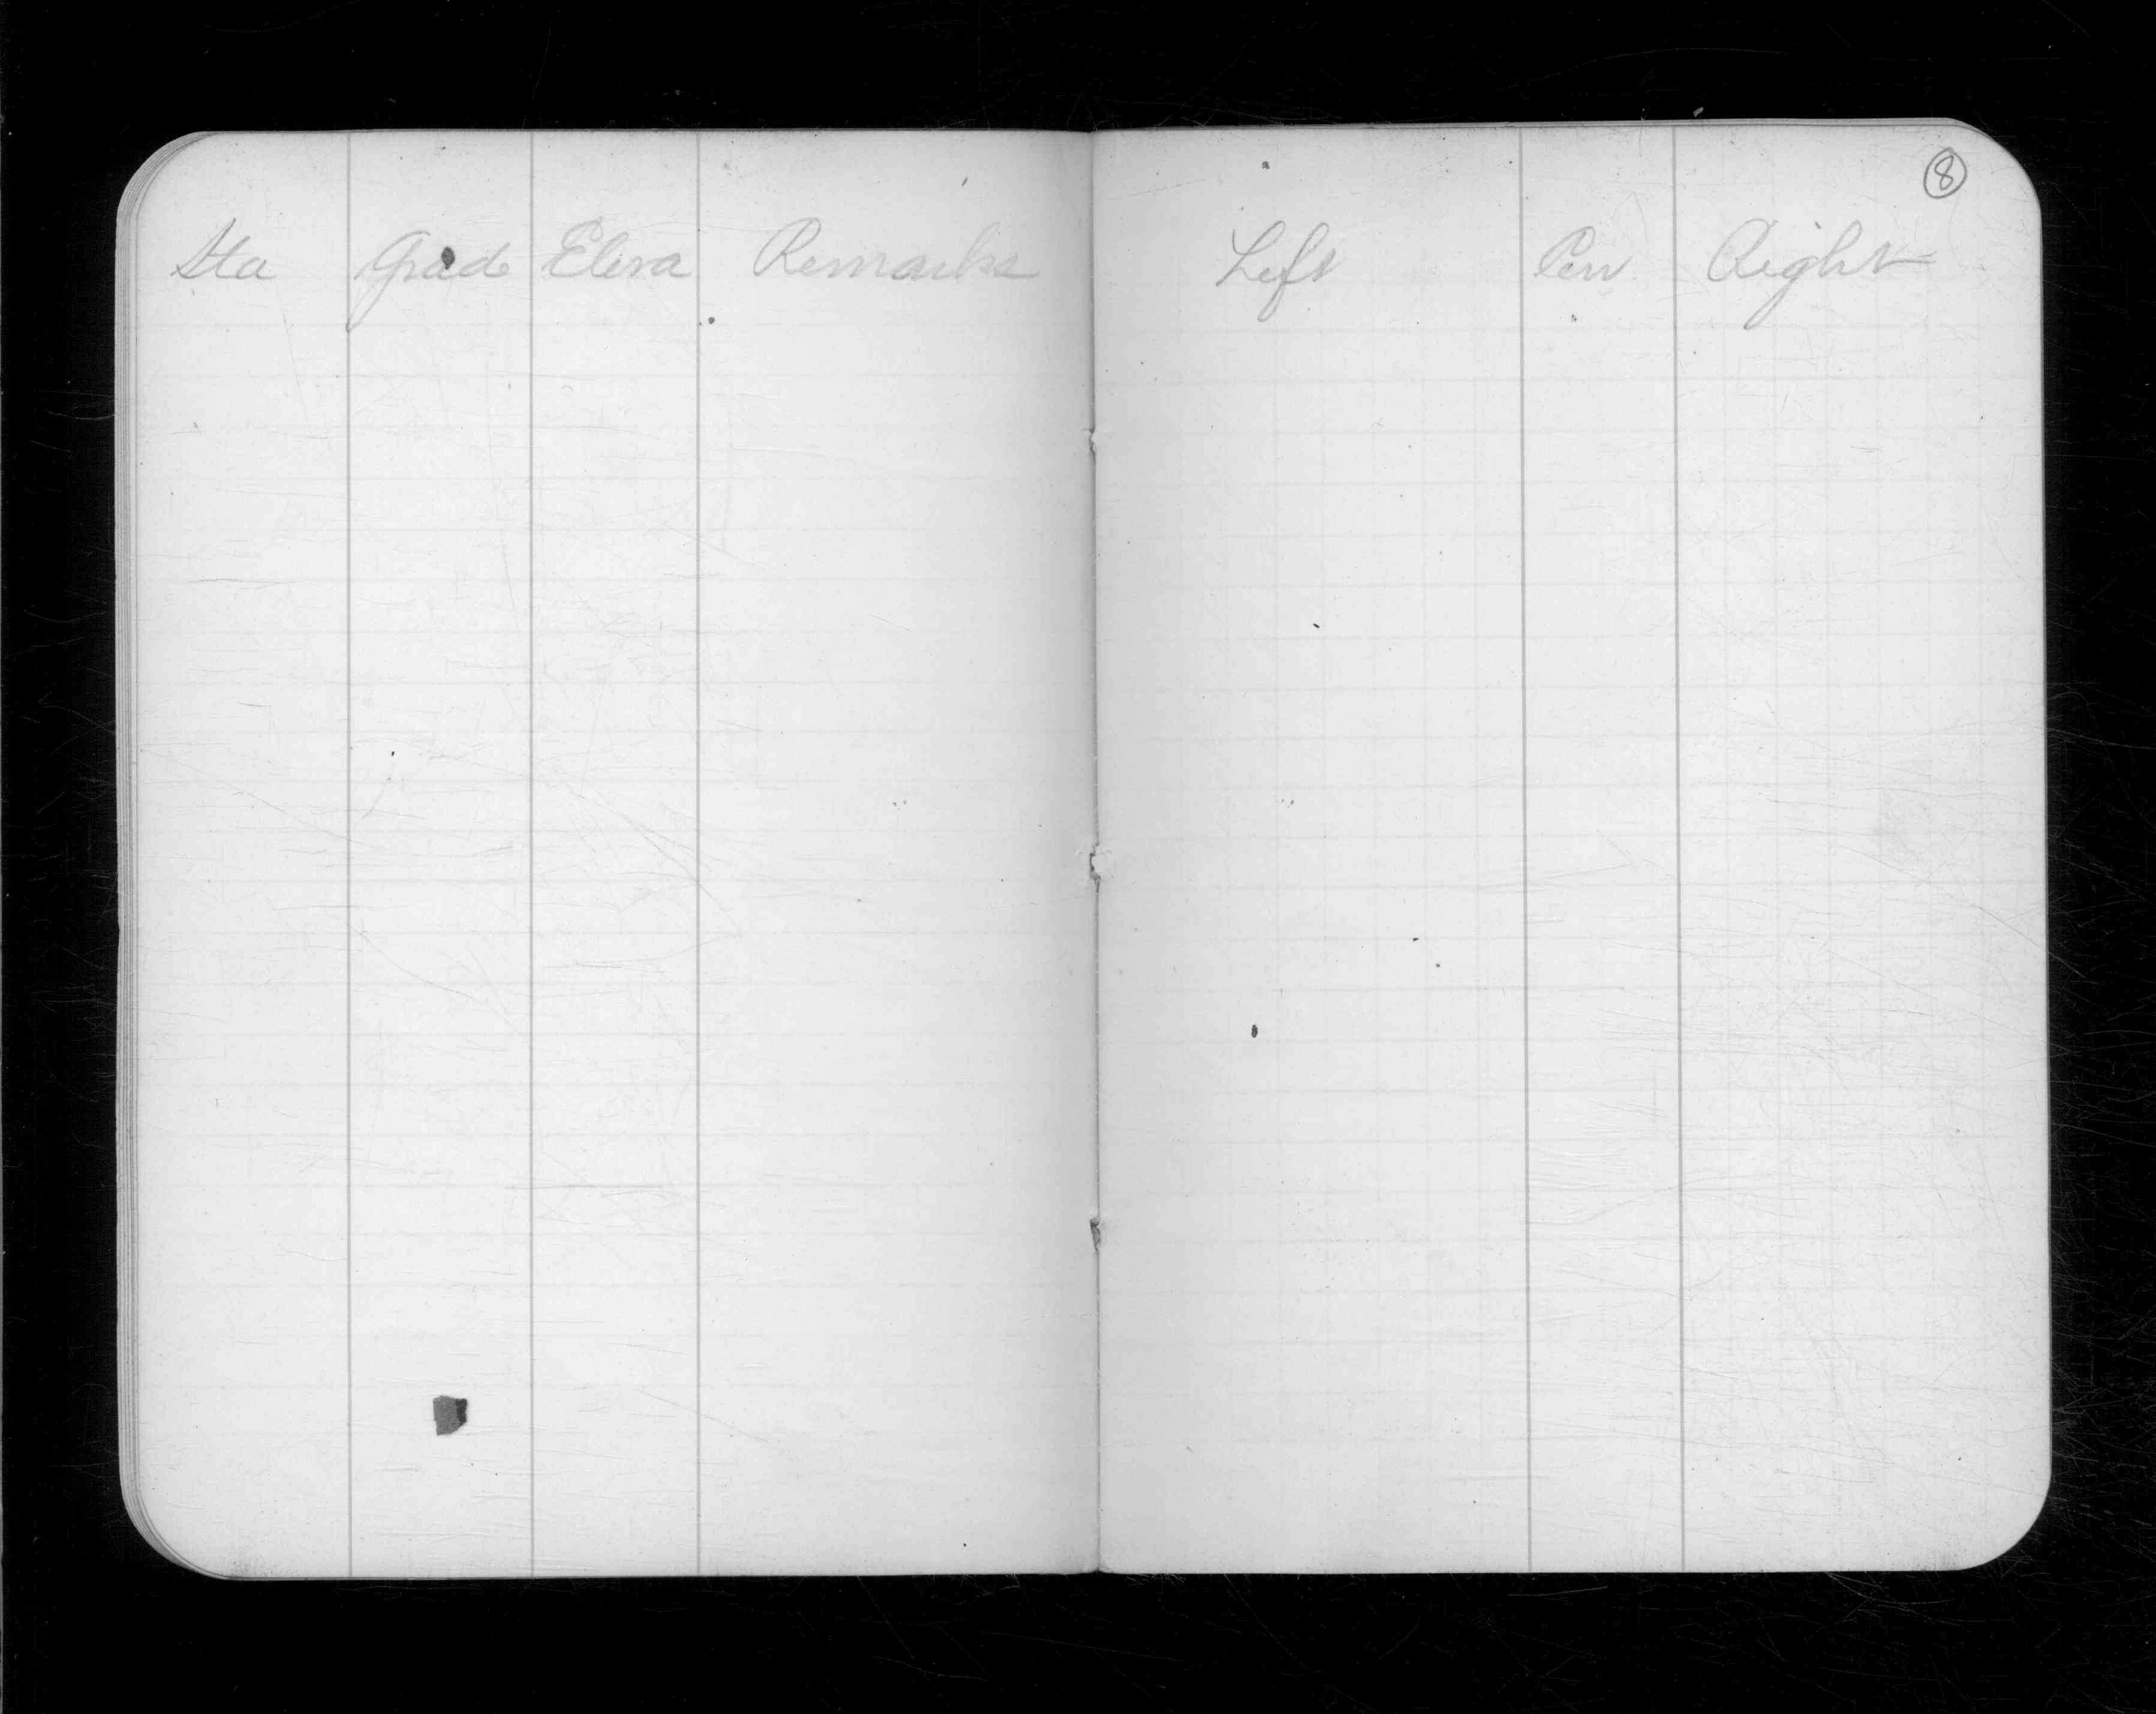 8
Sta Grade Eleva Remarks Left Cen Right